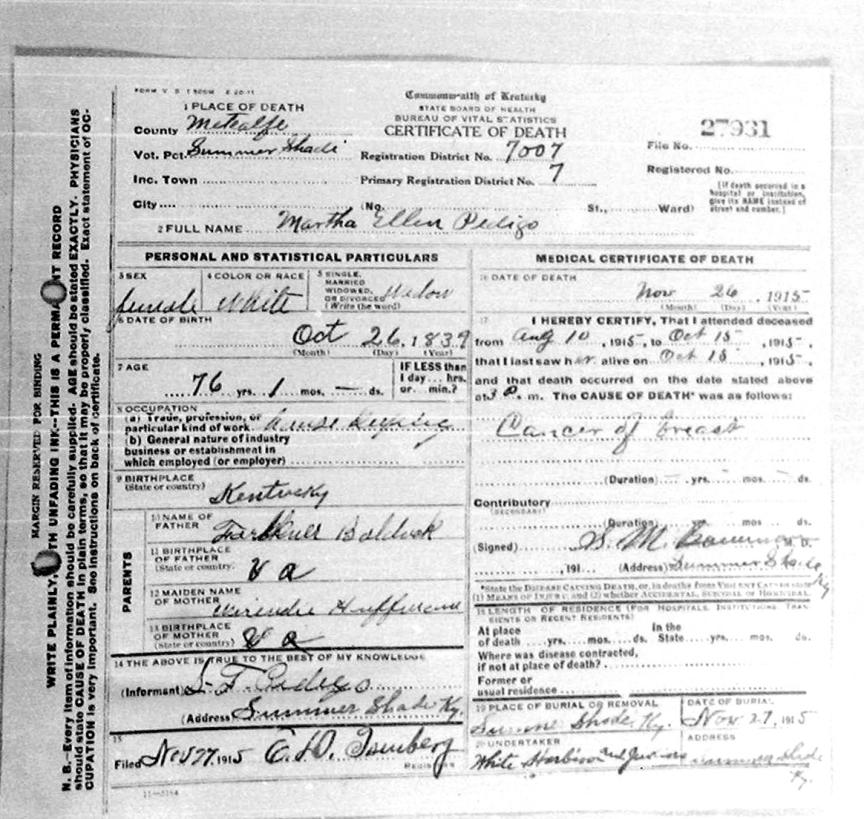 FORM V. S.
Commonwealth of Kentucky
STATE BOARD OF HEALTH
BUREAU OF VITAL STATISTICS
CERTIFICATE OF DEATH
1 PLACE OF DEATH
County Metcalfe
Vot. Pct. Summer Shade
Inc. Town
City
Registration District No. 7007
Primary Registration District No. 7
File No. 27931
Registered No.
(No. St., Ward)
[If death occurred in a
hospital or institution,
give its NAME instead of
street and number.]
2 FULL NAME Martha Ellen Pedigo
PERSONAL AND STATISTICAL PARTICULARS
3 SEX
female
4 COLOR OR RACE
White
5 SINGLE,
MARRIED
WIDOWED,
OR DIVORCED
(Write the word)
Widow
6 DATE OF BIRTH
Oct 26, 1839
(Month) (Day) (Year)
7 AGE
76 yrs. 1 mos. — ds.
IF LESS than
1 day... hrs.
or... min.?
8 OCCUPATION
(a) Trade, profession, or
particular kind of work. House Keeping
(b) General nature of industry
business or establishment in
which employed (or employer)
9 BIRTHPLACE
(State or country)
Kentucky
PARENTS
10 NAME OF
FATHER
11 BIRTHPLACE
OF FATHER
(State or country)
Va
12 MAIDEN NAME
OF MOTHER
Huffman
13 BIRTHPLACE
OF MOTHER
(State or country)
Va
14 THE ABOVE IS TRUE TO THE BEST OF MY KNOWLEDGE
(Informant) Pedigo
(Address) Summer Shade Ky.
15
Filed Nov 27, 1915
REGISTRAR
MEDICAL CERTIFICATE OF DEATH
16 DATE OF DEATH
Nov 26, 1915
(Month) (Day) (Year)
17 I HEREBY CERTIFY, That I attended deceased
from Aug 10, 1915, to Oct 15, 1915,
that I last saw her alive on Oct 15, 1915,
and that death occurred on the date stated above
at 3 P. m. The CAUSE OF DEATH* was as follows:
Cancer of breast
(Duration) — yrs. — mos. — ds.
Contributory
(SECONDARY)
(Duration) yrs. mos. ds.
(Signed) S. M. M. D.
, 191 (Address) Summer Shade Ky
*State the DISEASE CAUSING DEATH, or, in deaths from VIOLENT CAUSES state
(1) MEANS OF INJURY; and (2) whether ACCIDENTAL, SUICIDAL or HOMICIDAL
18 LENGTH OF RESIDENCE (FOR HOSPITALS, INSTITUTIONS, TRAN-
SIENTS OR RECENT RESIDENTS)
At place
of death yrs. mos. ds.
In the
State yrs. mos. ds.
Where was disease contracted,
if not at place of death?
Former or
usual residence
19 PLACE OF BURIAL OR REMOVAL
Summer Shade, Ky.
DATE OF BURIAL
Nov 27, 1915
20 UNDERTAKER
White
ADDRESS
Summer Shade
Ky.
MARGIN RESERVED FOR BINDING
WRITE PLAINLY, WITH UNFADING INK—THIS IS A PERMANENT RECORD
N. B.—Every item of information should be carefully supplied. AGE should be stated EXACTLY. PHYSICIANS
should state CAUSE OF DEATH in plain terms, so that it may be properly classified. Exact statement of OC-
CUPATION is very important. See instructions on back of certificate.